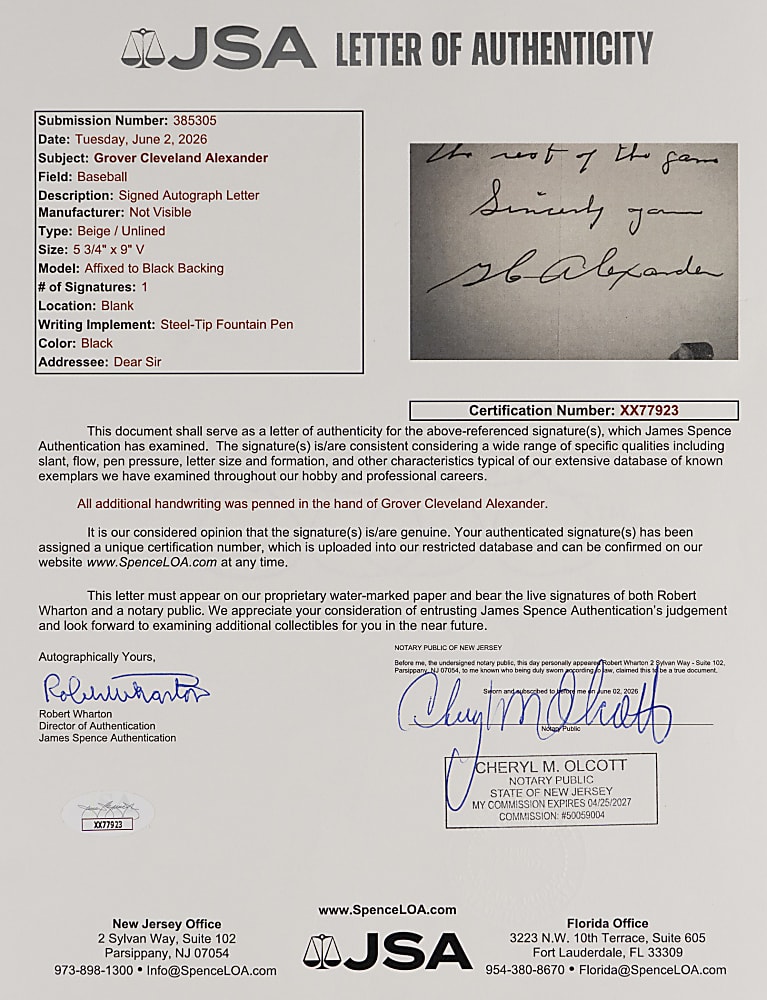 JSA LETTER OF AUTHENTICITY
Submission Number: 385305
Date: Tuesday, June 2, 2026
Subject: Grover Cleveland Alexander
Field: Baseball
Description: Signed Autograph Letter
Manufacturer: Not Visible
Type: Beige / Unlined
Size: 5 3/4" x 9" V
Model: Affixed to Black Backing
# of Signatures: 1
Location: Blank
Writing Implement: Steel-Tip Fountain Pen
Color: Black
Addressee: Dear Sir
the rest of the game
Sincerely yours
G C Alexander
Certification Number: XX77923
This document shall serve as a letter of authenticity for the above-referenced signature(s), which James Spence
Authentication has examined. The signature(s) is/are consistent considering a wide range of specific qualities including
slant, flow, pen pressure, letter size and formation, and other characteristics typical of our extensive database of known
exemplars we have examined throughout our hobby and professional careers.
All additional handwriting was penned in the hand of Grover Cleveland Alexander.
It is our considered opinion that the signature(s) is/are genuine. Your authenticated signature(s) has been
assigned a unique certification number, which is uploaded into our restricted database and can be confirmed on our
website www.SpenceLOA.com at any time.
This letter must appear on our proprietary water-marked paper and bear the live signatures of both Robert
Wharton and a notary public. We appreciate your consideration of entrusting James Spence Authentication's judgement
and look forward to examining additional collectibles for you in the near future.
Autographically Yours,
Robert Wharton
Robert Wharton
Director of Authentication
James Spence Authentication
NOTARY PUBLIC OF NEW JERSEY
Before me, the undersigned notary public, this day personally appeared Robert Wharton 2 Sylvan Way - Suite 102,
Parsippany, NJ 07054, to me known who being duly sworn according to law, claimed this to be a true document,
Sworn and subscribed to before me on June 02, 2026
Cheryl M Olcott
Notary Public
CHERYL M. OLCOTT
NOTARY PUBLIC
STATE OF NEW JERSEY
MY COMMISSION EXPIRES 04/25/2027
COMMISSION: #50059004
XX77923
www.SpenceLOA.com
New Jersey Office
2 Sylvan Way, Suite 102
Parsippany, NJ 07054
973-898-1300 • Info@SpenceLOA.com
JSA
Florida Office
3223 N.W. 10th Terrace, Suite 605
Fort Lauderdale, FL 33309
954-380-8670 • Florida@SpenceLOA.com